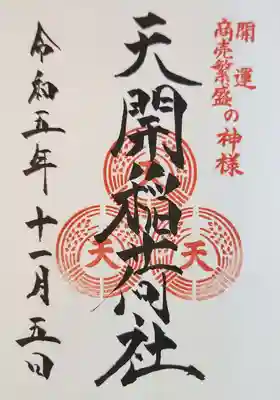 開運
商売繁盛の神様
天開稲荷社
天 天
令和五年十一月五日